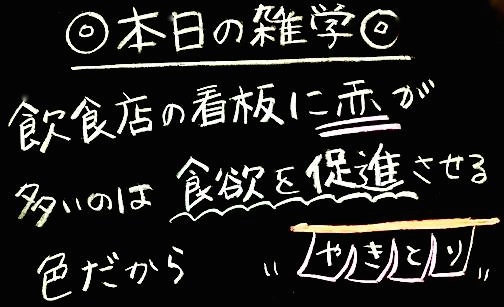 ◎本日の雑学◎
飲食店の看板に赤が
多いのは 食欲を促進させる
色だから 〃 やきとり 〃